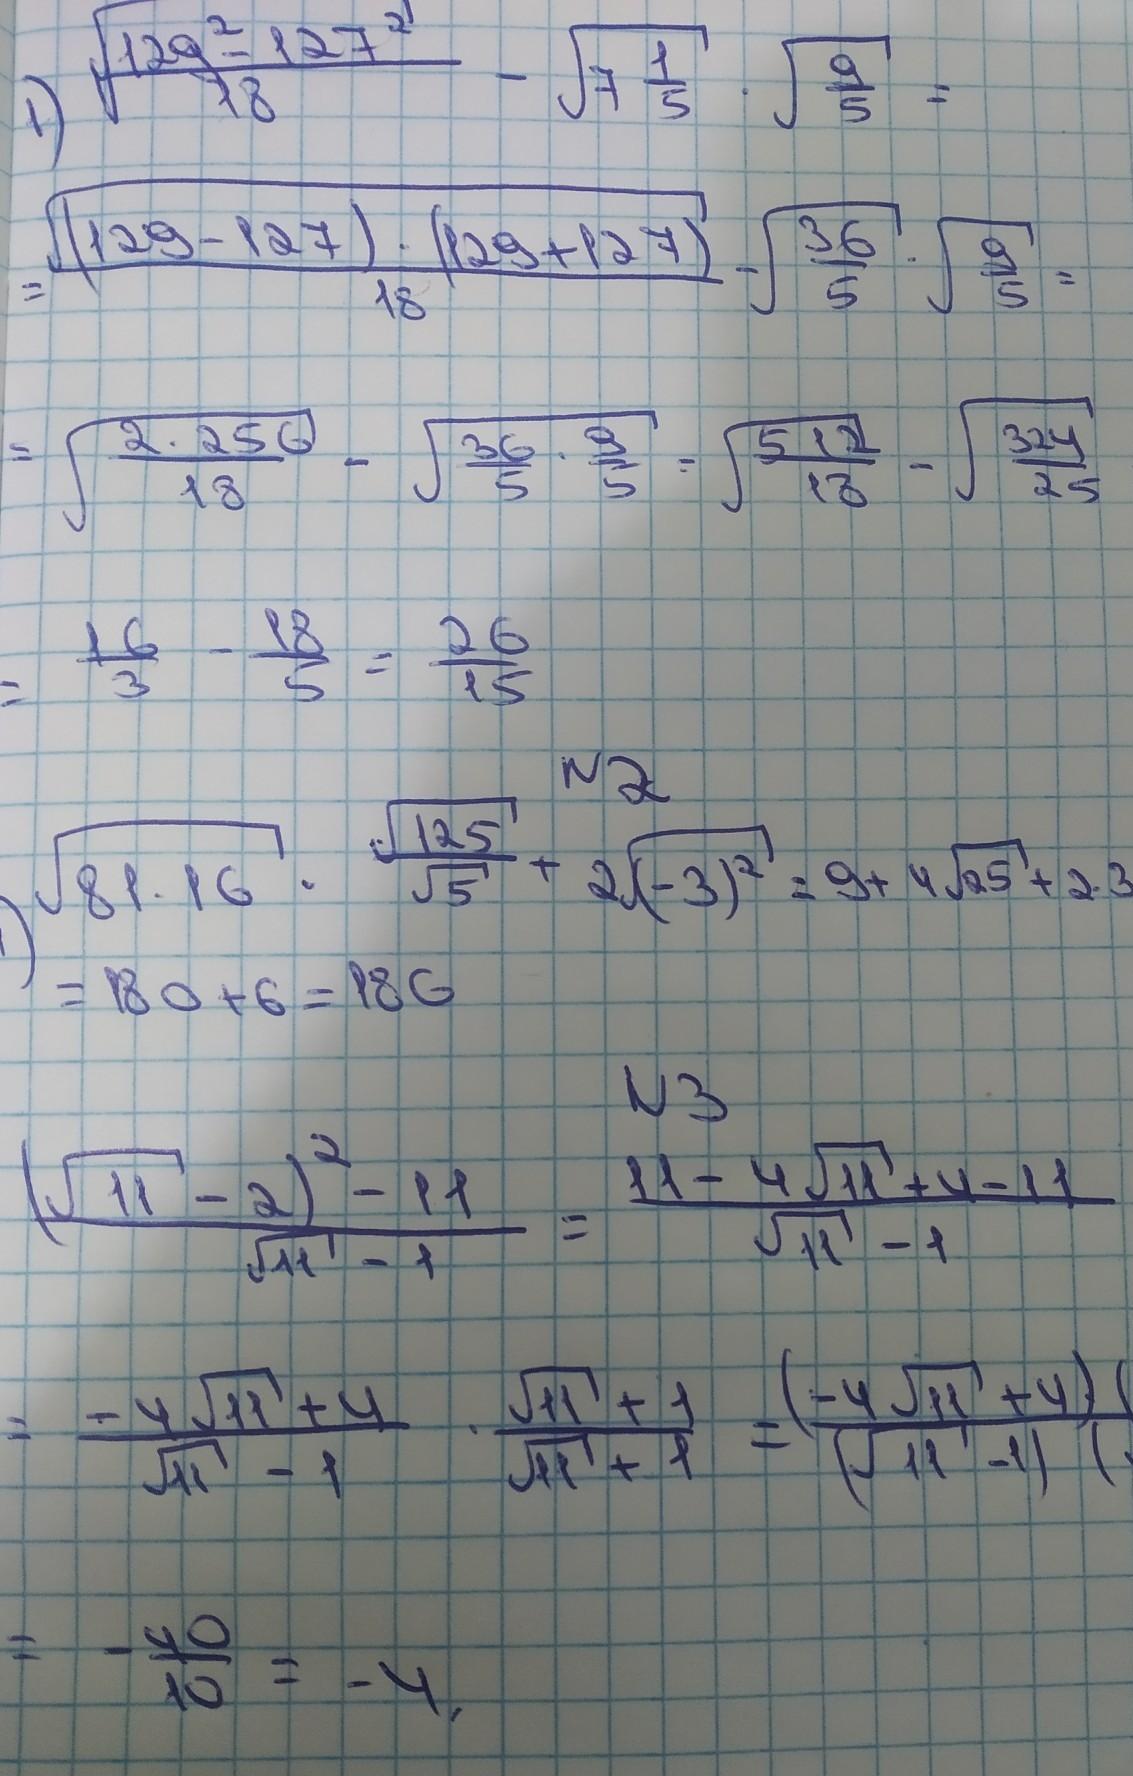 1) √(129² - 127²)/18 - √(7 1/5) · √(9/5) =
= √((129 - 127) · (129 + 127))/18 - √(36/5) · √(9/5) =
= √(2 · 256/18) - √(36/5 · 9/5) = √(512/18) - √(324/25)
= 16/3 - 18/5 = 26/15
N2
1) √(81 · 16) · √125/√5 + 2√(-3)² = 9 + 4√25 + 2 · 3
= 180 + 6 = 186
N3
((√11 - 2)² - 11)/(√11 - 1) = (11 - 4√11 + 4 - 11)/(√11 - 1)
= (-4√11 + 4)/(√11 - 1) · (√11 + 1)/(√11 + 1) = (-4√11 + 4)(/(√11 - 1)(
= -40/10 = -4.